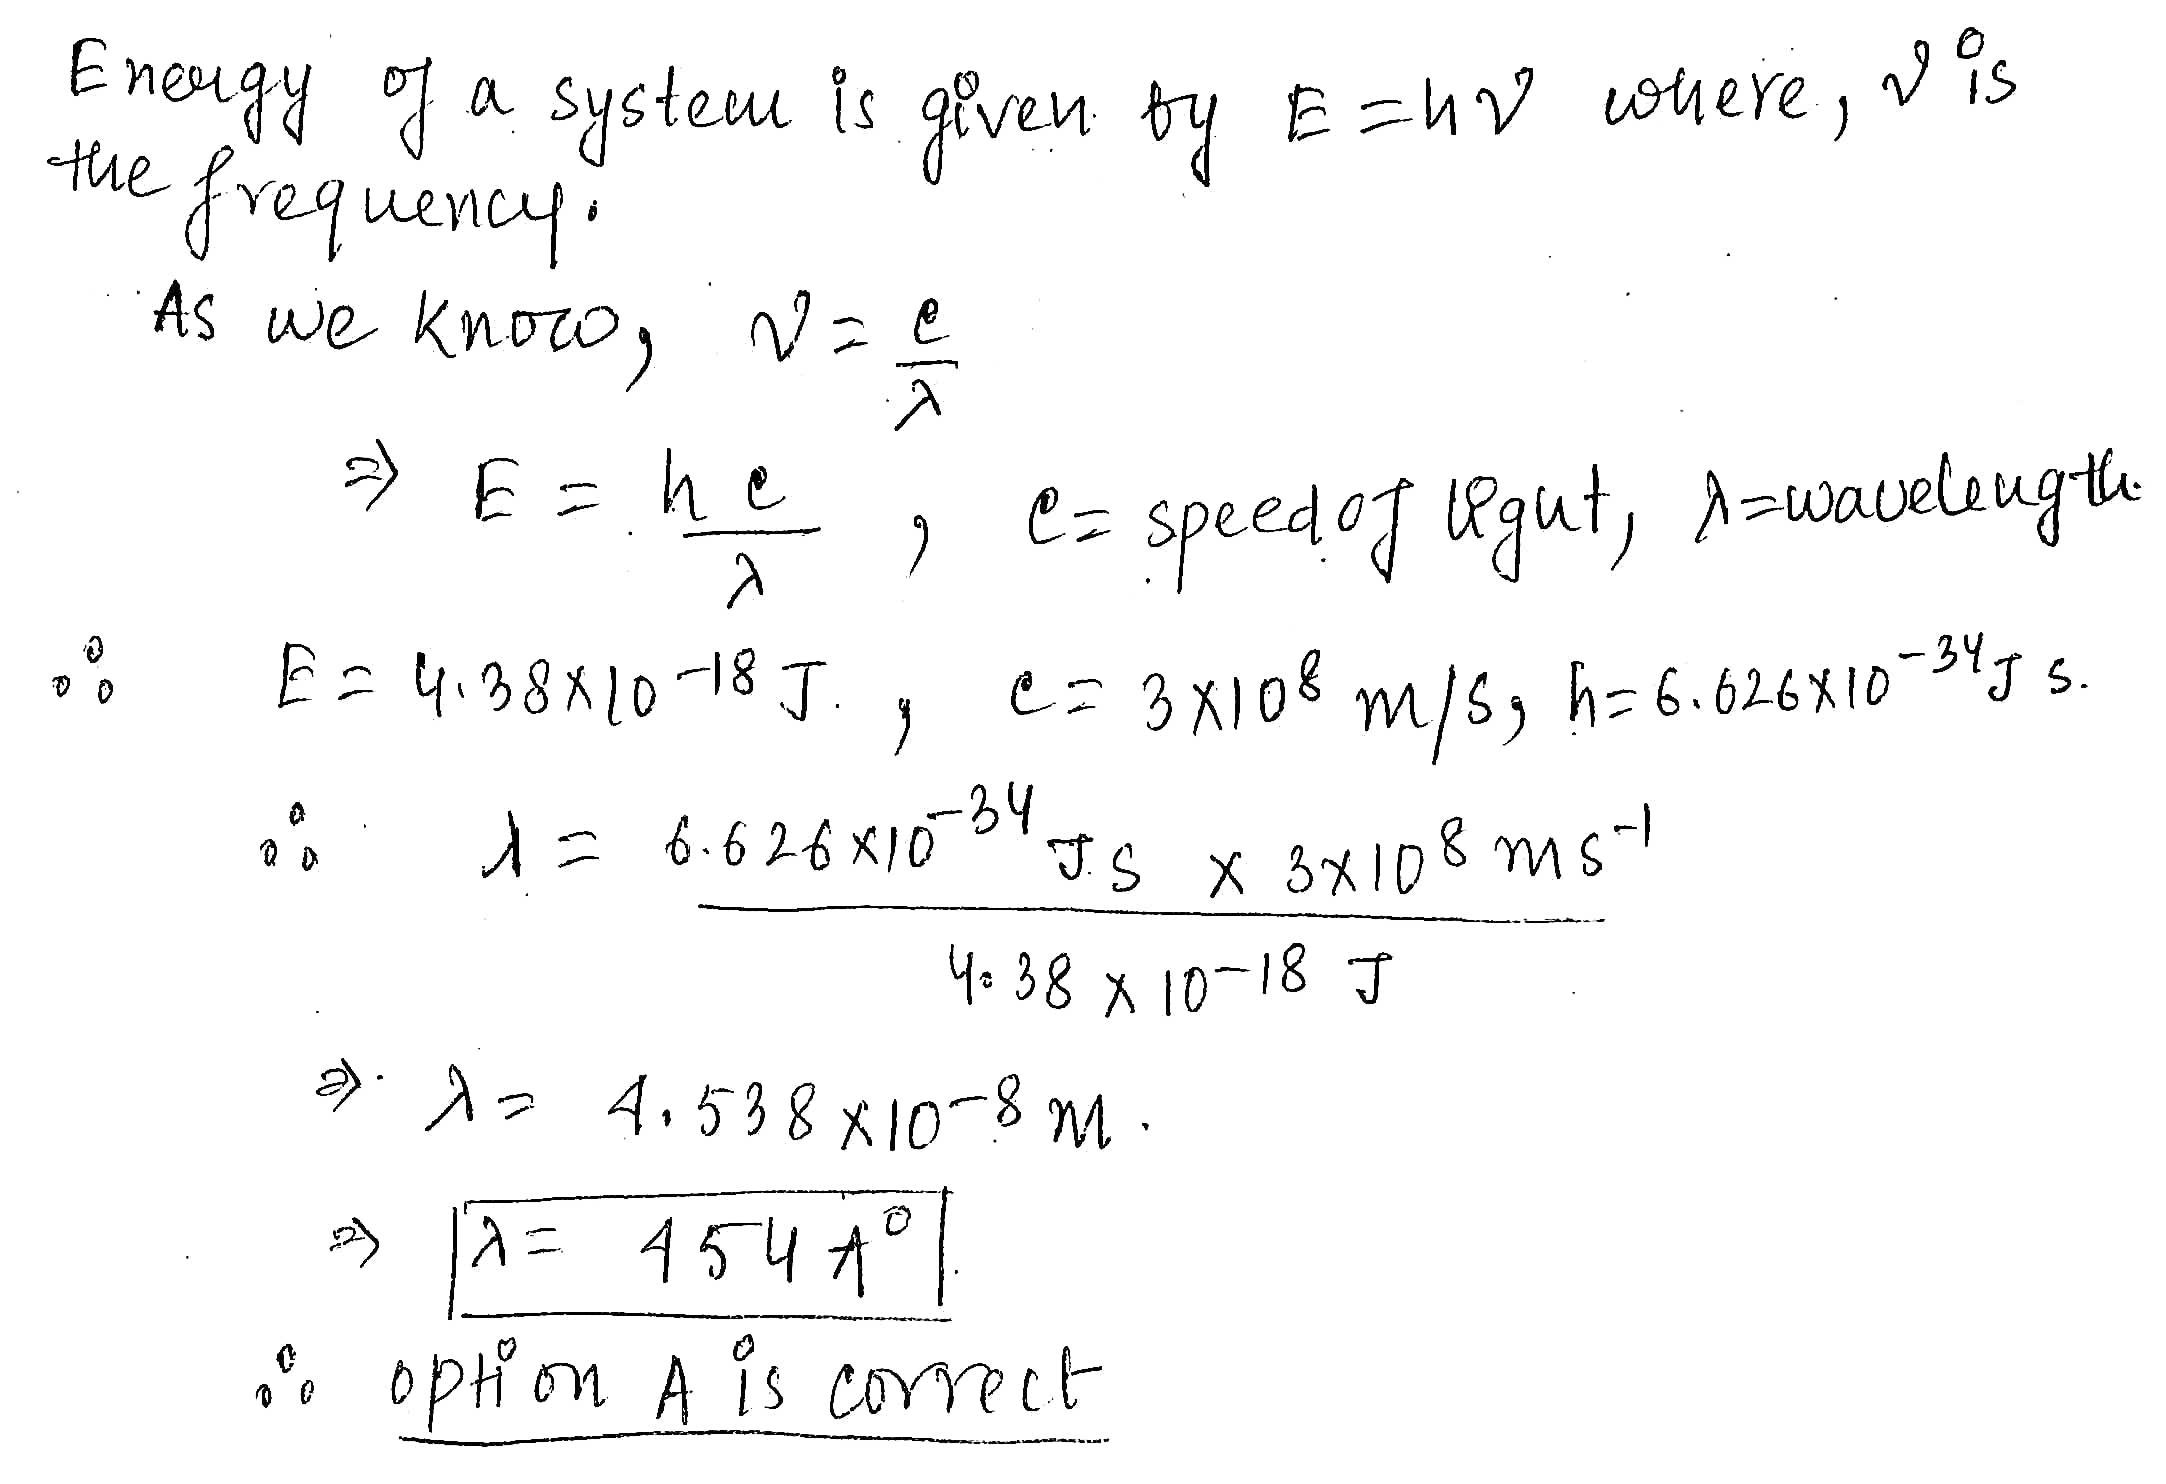 Energy of a system is given by E = hν where, ν is
the frequency.
As we know, ν = c/λ
⇒ E = hc/λ , c = speed of light, λ = wavelength
∴ E = 4.38×10-18 J. , c = 3×10⁸ m/s, h = 6.626×10⁻³⁴ J s.
∴ λ = 6.626×10⁻³⁴ J.s × 3×10⁸ ms⁻¹
4.38 × 10-18 J
⇒ λ = 4.538×10-8 m.
⇒ λ = 454 A°
∴ option A is correct